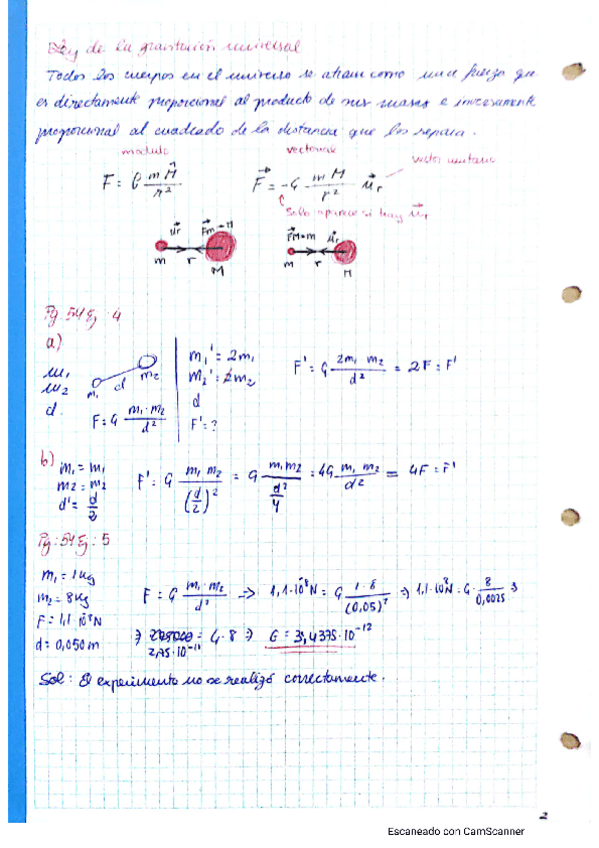 Ley de la gravitación universal
Todos los cuerpos en el universo se atraen como una fuerza que
es directamente proporcional al producto de sus masas e inversamente
proporcional al cuadrado de la distancia que los separa.
modulo vectorial vector unitario
F = G mM/r² F⃗ = -G mM/r² u⃗r
Solo aparece si hay u⃗r
u⃗r F⃗m-M u⃗r
m r M m r M
Pg. 54 Ej. 4
a)
m₁ m₁' = 2m₁ F' = G 2m₁ m₂/d² = 2F = F'
m₂ m₁ d m₂ m₂' = m₂
d. d
F = G m₁·m₂/d² F' = ?
b) m₁ = m₁ F' = G m₁ m₂/(d/2)² = G m₁m₂/(d²/4) = 4G m₁ m₂/d² = 4F = F'
m₂ = m₂
d' = d/2
Pg: 54 Ej: 5
m₁ = 1kg
m₂ = 8kg F = G m₁·m₂/d² -> 1,1·10⁻⁸N = G 1·8/(0,05)² => 1,1·10⁻⁸N = G · 8/0,0025 =>
F = 1,1·10⁻⁸N
d = 0,050m => 2,75·10⁻¹¹ = G·8 => G = 3,4375·10⁻¹²
Sol: El experimento no se realizó correctamente.
2
Escaneado con CamScanner